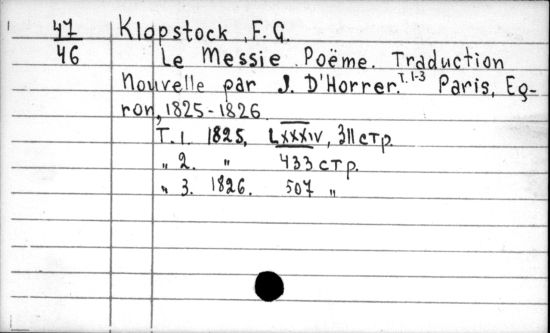 47 Klopstock, F. G.
46 Le Messie. Poëme. Traduction
nouvelle par J. D'Horrer. T. 1-3 Paris, Eg-
ron, 1825-1826.
T. 1. 1825, LXXXIV, 311 стр.
„ 2. „ 433 стр.
„ 3. 1826. 507 „